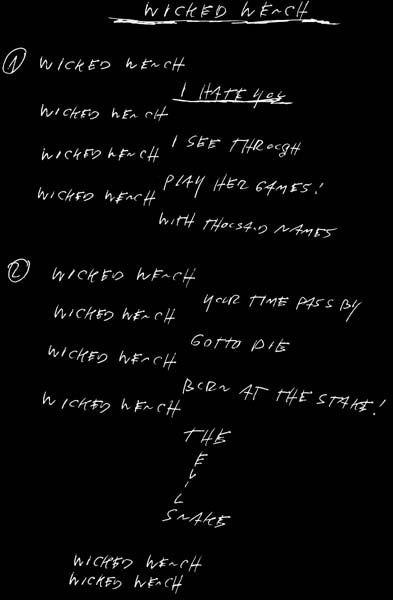 WICKED WENCH
1 WICKED WENCH
I HATE YOU
WICKED WENCH
WICKED WENCH I SEE THROUGH
WICKED WENCH PLAY HER GAMES!
WITH THOUSAND NAMES
2 WICKED WENCH
WICKED WENCH YOUR TIME PASS BY
WICKED WENCH GOTTO DIE
WICKED WENCH BURN AT THE STAKE!
THE
E
V
I
L
SNAKE
WICKED WENCH
WICKED WENCH